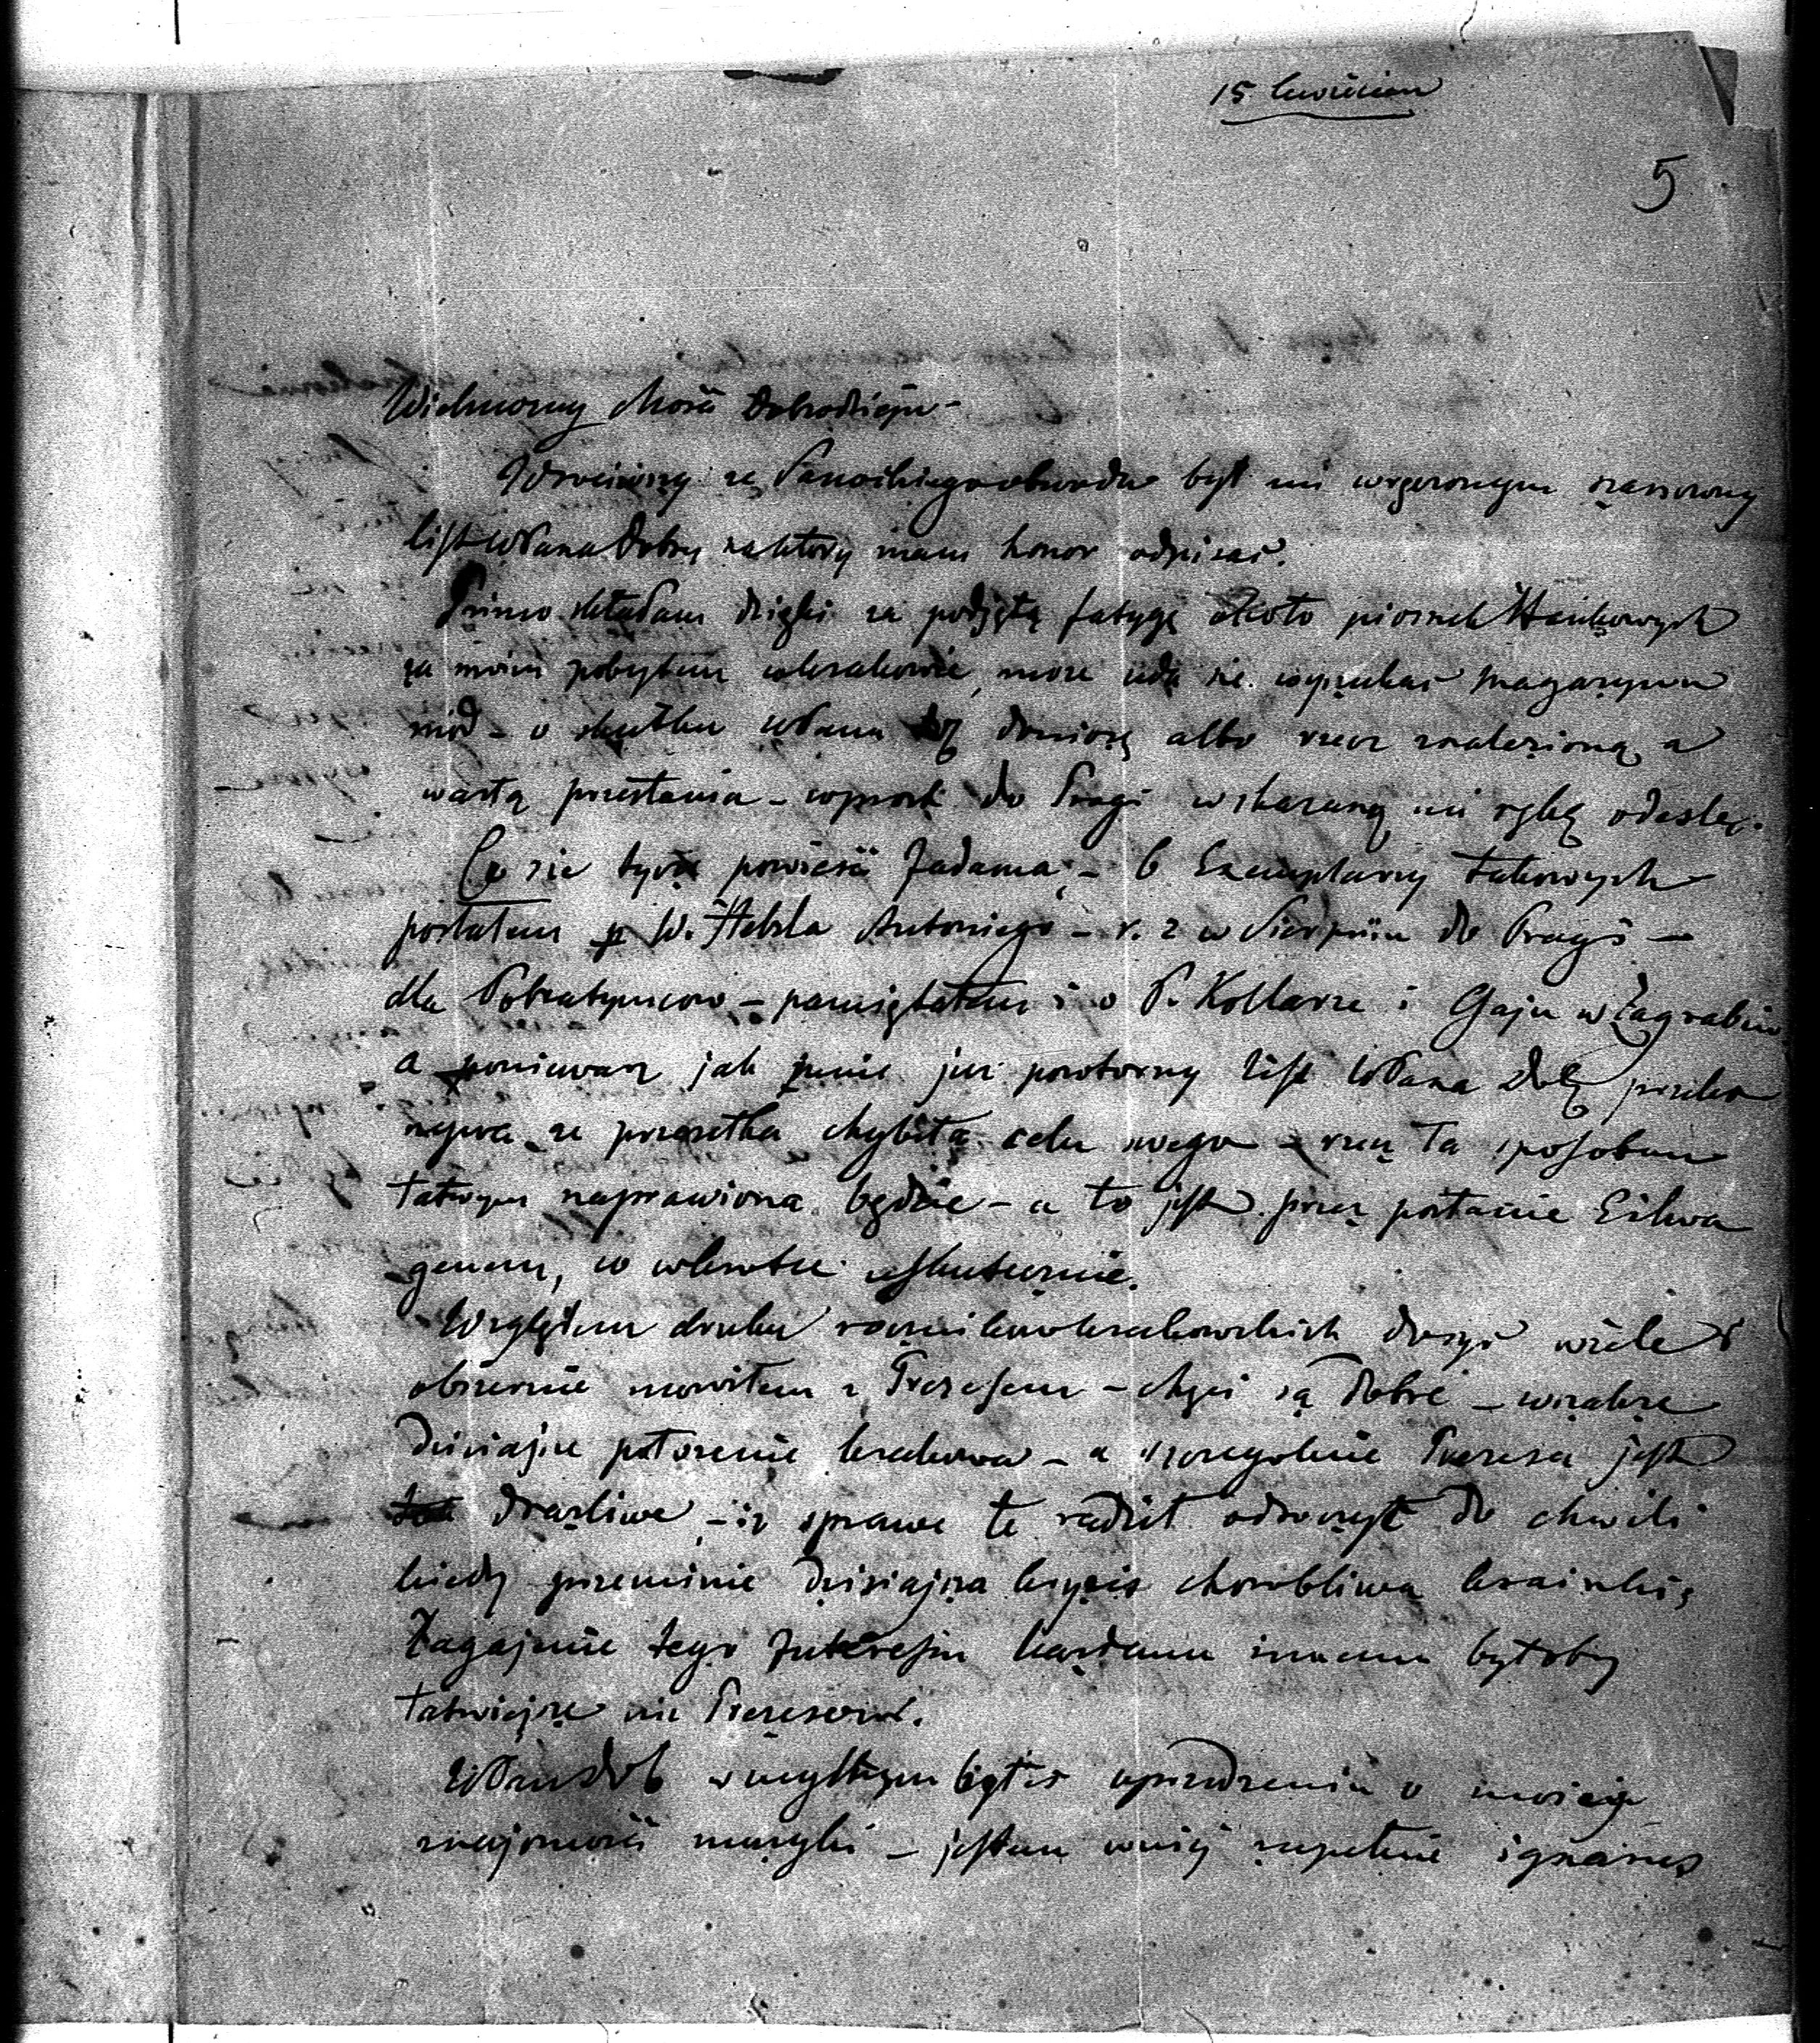 15 kwietnia
5
Wielmożny Mości Dobrodzieju -
Wróciwszy ze Sanockiego obwodu był mi wręczonym szanowny
list WPana Dobry na który mam honor odpisać.
Primo składam dzięki za podjętą fatygę około piosnek
za moim pobytem w Krakowie, może uda się wyszukać magazynu
- o skutku WPanu doniosę albo rzecz znalezioną a
wartą przesłania - wprost do Pragi wskazaną mi odeślę.
Co się tycze powieści Jadama, - 6 Exemplarzy takowych
posłałem p W. Antoniego - r. z w Sierpniu do Pragi -
dla Pobratymców - pamiętałem i o P. Kollarze i Gaju w Zagrabiu
a ponieważ jak mnie już powtorny list WPana Dob przeko
nywa że przesełka chybiła celu swego - rzecz ta sposobem
łatwym naprawiona będzie - a to jest przez posłanie Eilwa
genem, co wkrotce uskutecznię.
Względem druku roczników krakowskich dosyć wiele i
obszernie mowiłem z Prezesem - chęci są dobre - wszakże
dzisiajsze położenie Krakowa - a szczegolnie Prezesa jest
drażliwe - iż sprawe te radził odroczyć do chwili
kiedy przeminie dzisiajsza kryzis chorobliwa krainki;
Zagajenie tego Interessu każdemu innemu byłoby
łatwiejsze niż Prezesowi.
WPan Dob w mylnym byłeś uprzedzeniu o mojej
znajomości muzyki - jestem w niej zupełnie ignarus